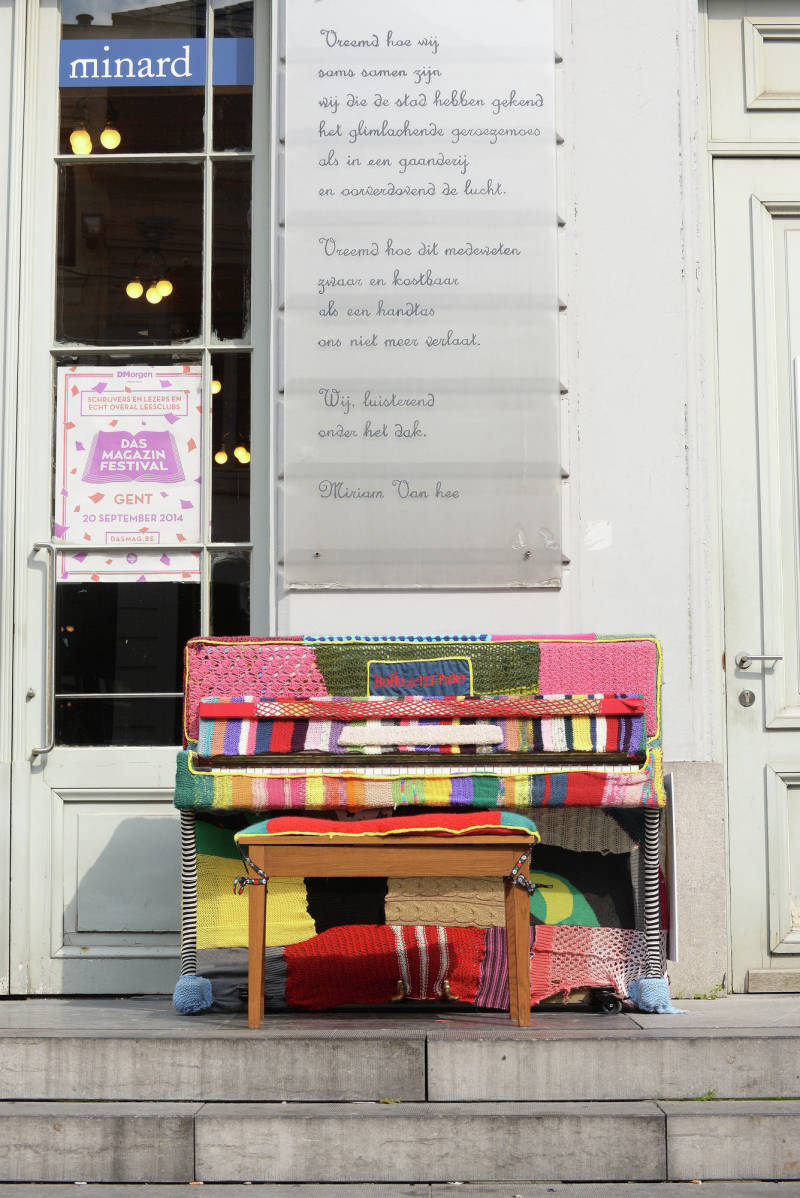 minard
Vreemd hoe wij
soms samen zijn
wij die de stad hebben gekend
het glimlachende geroezemoes
als in een gaanderij
en oorverdovend de lucht.
Vreemd hoe dit medeweten
zwaar en kostbaar
als een handtas
ons niet meer verlaat.
Wij, luisterend
onder het dak.
Miriam Van hee
DMorgen
SCHRIJVERS EN LEZERS EN
ECHT OVERAL LEESCLUBS
DAS
MAGAZIN
FESTIVAL
GENT
20 SEPTEMBER 2014
DASMAG.BE